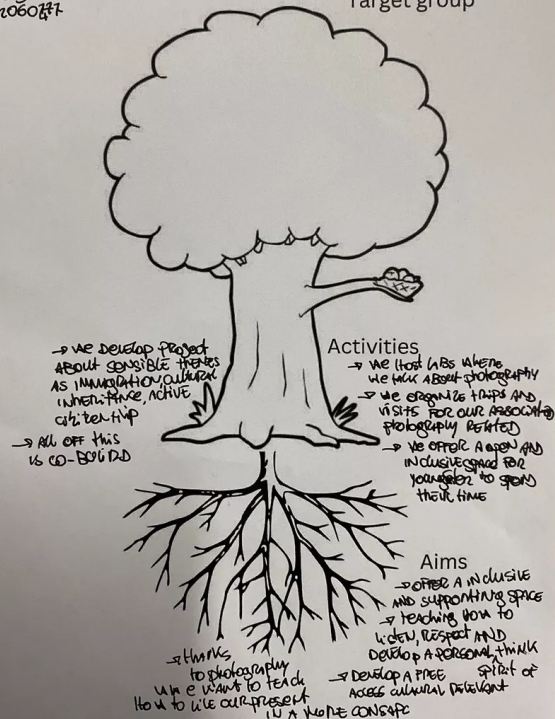 Target group
→ WE DEVELOP PROJECT
ABOUT SENSIBLE THEMES
AS IMMIGRATION, CULTURAL
INHERITANCE, ACTIVE
→ ALL OFF THIS
IS
Activities
→ WE HOST LABS WHERE
WE TALK ABOUT PHOTOGRAPHY
→ WE ORGANIZE TRIPS AND
VISITS FOR OUR ASSOCIATED
PHOTOGRAPHY RELATED
→ WE OFFER A OPEN AND
INCLUSIVE SPACE FOR
YOUNGSTER TO SPEND
THEIR TIME
Aims
→ OFFER A INCLUSIVE
AND SUPPORTING SPACE
→ TEACHING HOW TO
LISTEN, RESPECT AND
DEVELOP A PERSONAL THINK
SPIRIT OF
→ DEVELOP A FREE
ACCESS CULTURAL RELEVANT
→ THANKS
TO PHOTOGRAPHY
WE WANT TO TEACH
HOW TO LIVE OUR PRESENT
IN A MORE